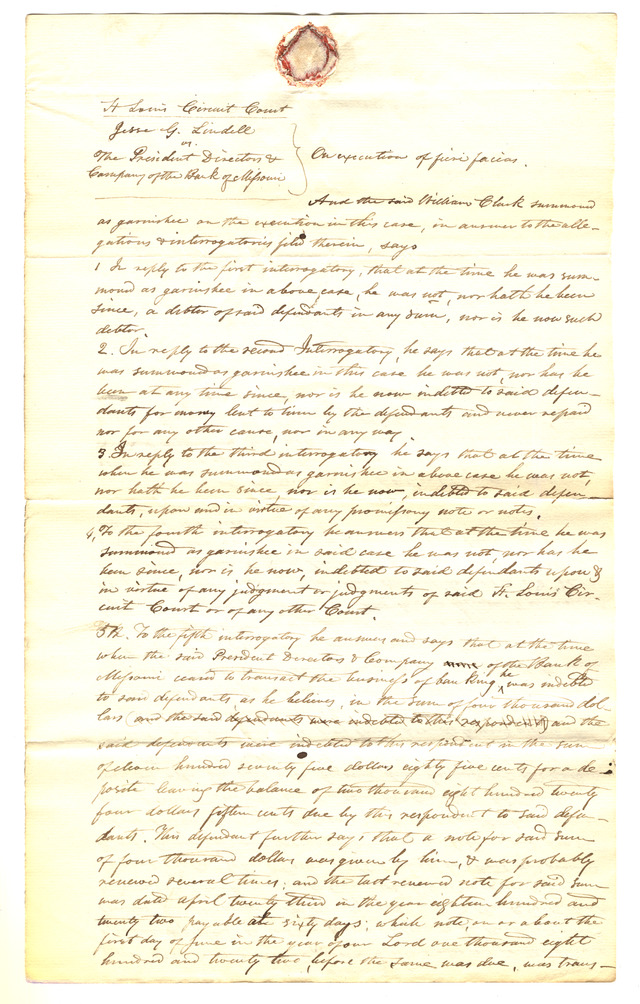 St Louis Circuit Court
Jesse G. Lindell
vs.
The President Directors &
Company of the Bank of Missouri
On execution of fieri facias.
And the said William Clark summond
as garnishee on the execution in this case, in answer to the alle-
gations & interrogatories filed therein, says
1 In reply to the first interrogatory, that at the time he was sum-
mond as garnishee in above case, he was not, nor hath he been
since, a debtor of said defendants in any sum, nor is he now such
debtor.
2. In reply to the second Interrogatory, he says that at the time he
was summond as garnishee in this case he was not, nor has he
been at any time since, nor is he now indebted to said defen-
dants for money lent to him by the defendants and never repaid
nor for any other cause, nor in any way.
3. In reply to the third interrogatory he says that at the time
when he was summond as garnishee in above case he was not,
nor hath he been since, nor is he now, indebted to said defen-
dants, upon and in virtue of any promissory note or notes.
4, To the fourth interrogatory he answers that at the time he was
summond as garnishee in said case he was not, nor has he
been since, nor is he now, indebted to said defendants upon &
in virtue of any judgment or judgments of said St. Louis Cir-
cuit Court or of any other Court.
5th. To the fifth interrogatory he answers and says that at the time
when the said President Directors & Company of the Bank of
Missouri ceased to transact the business of banking he was indebted
to said defendants, as he believes, in the sum of four thousand dol-
lars (and the said defendants were indebted to this respondent) and the
said defendants were indebted to this respondent in the sum
of eleven hundred seventy five dollars eighty five cents for a de-
posite leaving the balance of two thousand eight hundred twenty
four dollars fifteen cents due by this respondent to said defen-
dants. This defendant further says that a note for said sum
of four thousand dollars was given by him, & was probably
renewed several times; and the last renewed note for said sum
was dated april twenty third in the year eighteen hundred and
twenty two payable at sixty days; which note, on or about the
first day of June in the year of our Lord one thousand eight
hundred and twenty two, before the same was due, was trans-